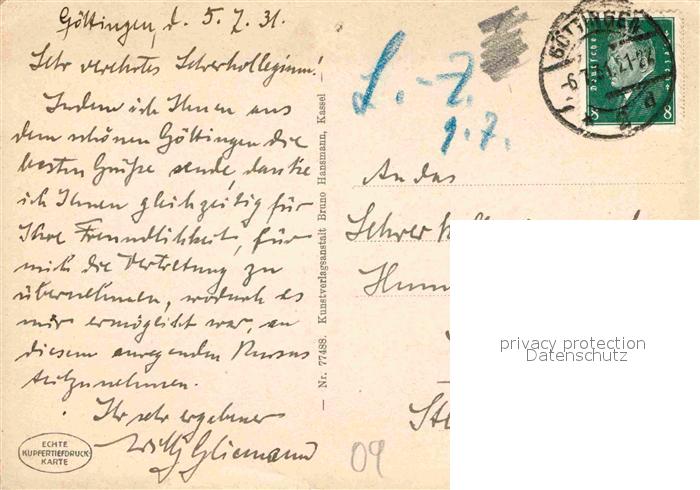 Göttingen, d. 5.7.31.
Sehr verehrtes Lehrerkollegium!
Indem ich Ihnen aus
dem schönen Göttingen die
besten Grüße sende, danke
ich Ihnen gleichzeitig für
Ihre Freundlichkeit, für
mich die Vertretung zu
übernehmen, wodurch es
mir ermöglicht war, an
diesem anregenden Kursus
teilzunehmen.
Ihr sehr ergebener
Willy Gliemann
ECHTE
KUPFERTIEFDRUCK-
KARTE
– Nr. 77488. Kunstverlagsanstalt Bruno Hansmann, Kassel –
L.-Z.
9.7.
An das
Lehrerkoll
Hum
St
09
GÖTTINGEN
Deutsches Reich
8 8
privacy protection
Datenschutz